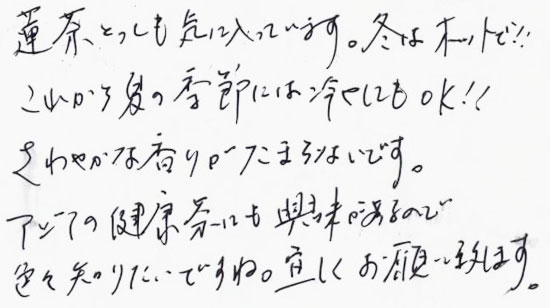 蓮茶、とっても気に入っています。冬はホットで!!
これから夏の季節には冷やしてもOK!!
さわやかな香りがたまらないです。
アジアの健康茶にも興味があるので
色々知りたいですね。宜しくお願い致します。